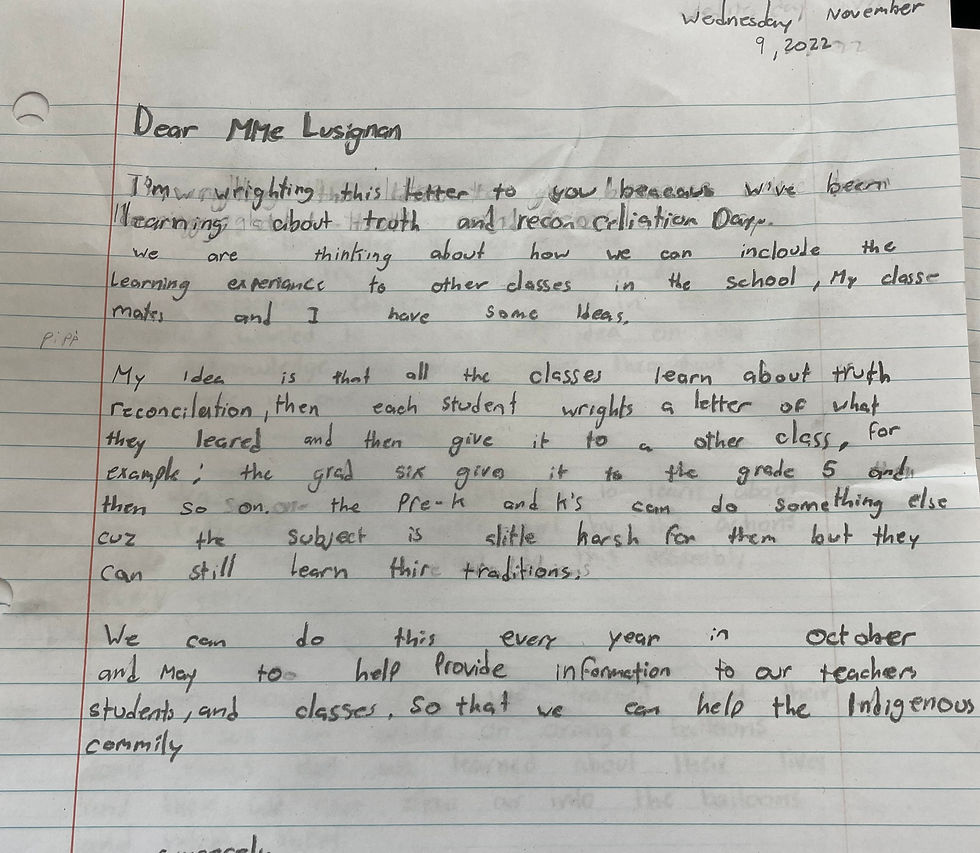 Wednesday November
9, 2022
Dear MMe Lusignan
I'm wrighting this letter to you beacaus w've been
learning about truth and reconciliation Day.
we are thinking about how we can incloude the
Learning experiance to other classes in the school, My classe
mates and I have some Ideas.
My idea is that all the classes learn about truth
reconcilation, then each student wrights a letter of what
they leared and then give it to a other class, for
example: the grad six give it to the grade 5 and
then so on, the Pre-k and k's can do something else
cuz the subject is slitle harsh for them but they
can still learn thire traditions.
We can do this every year in October
and May to help Provide information to our teachers
students, and classes. So that we can help the Indigenous
commily